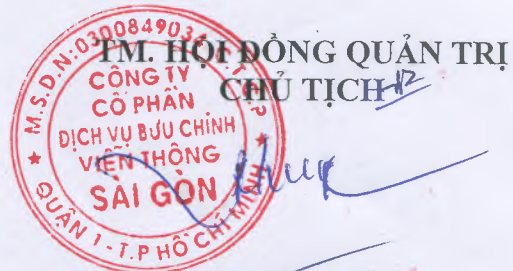 TM. HỘI ĐỒNG QUẢN TRỊ
CHỦ TỊCH
M.S.D.N:0300849034
CÔNG TY
CỔ PHẦN
DỊCH VỤ BƯU CHÍNH
VIỄN THÔNG
SÀI GÒN
QUẬN 1 - T.P HỒ CHÍ MINH